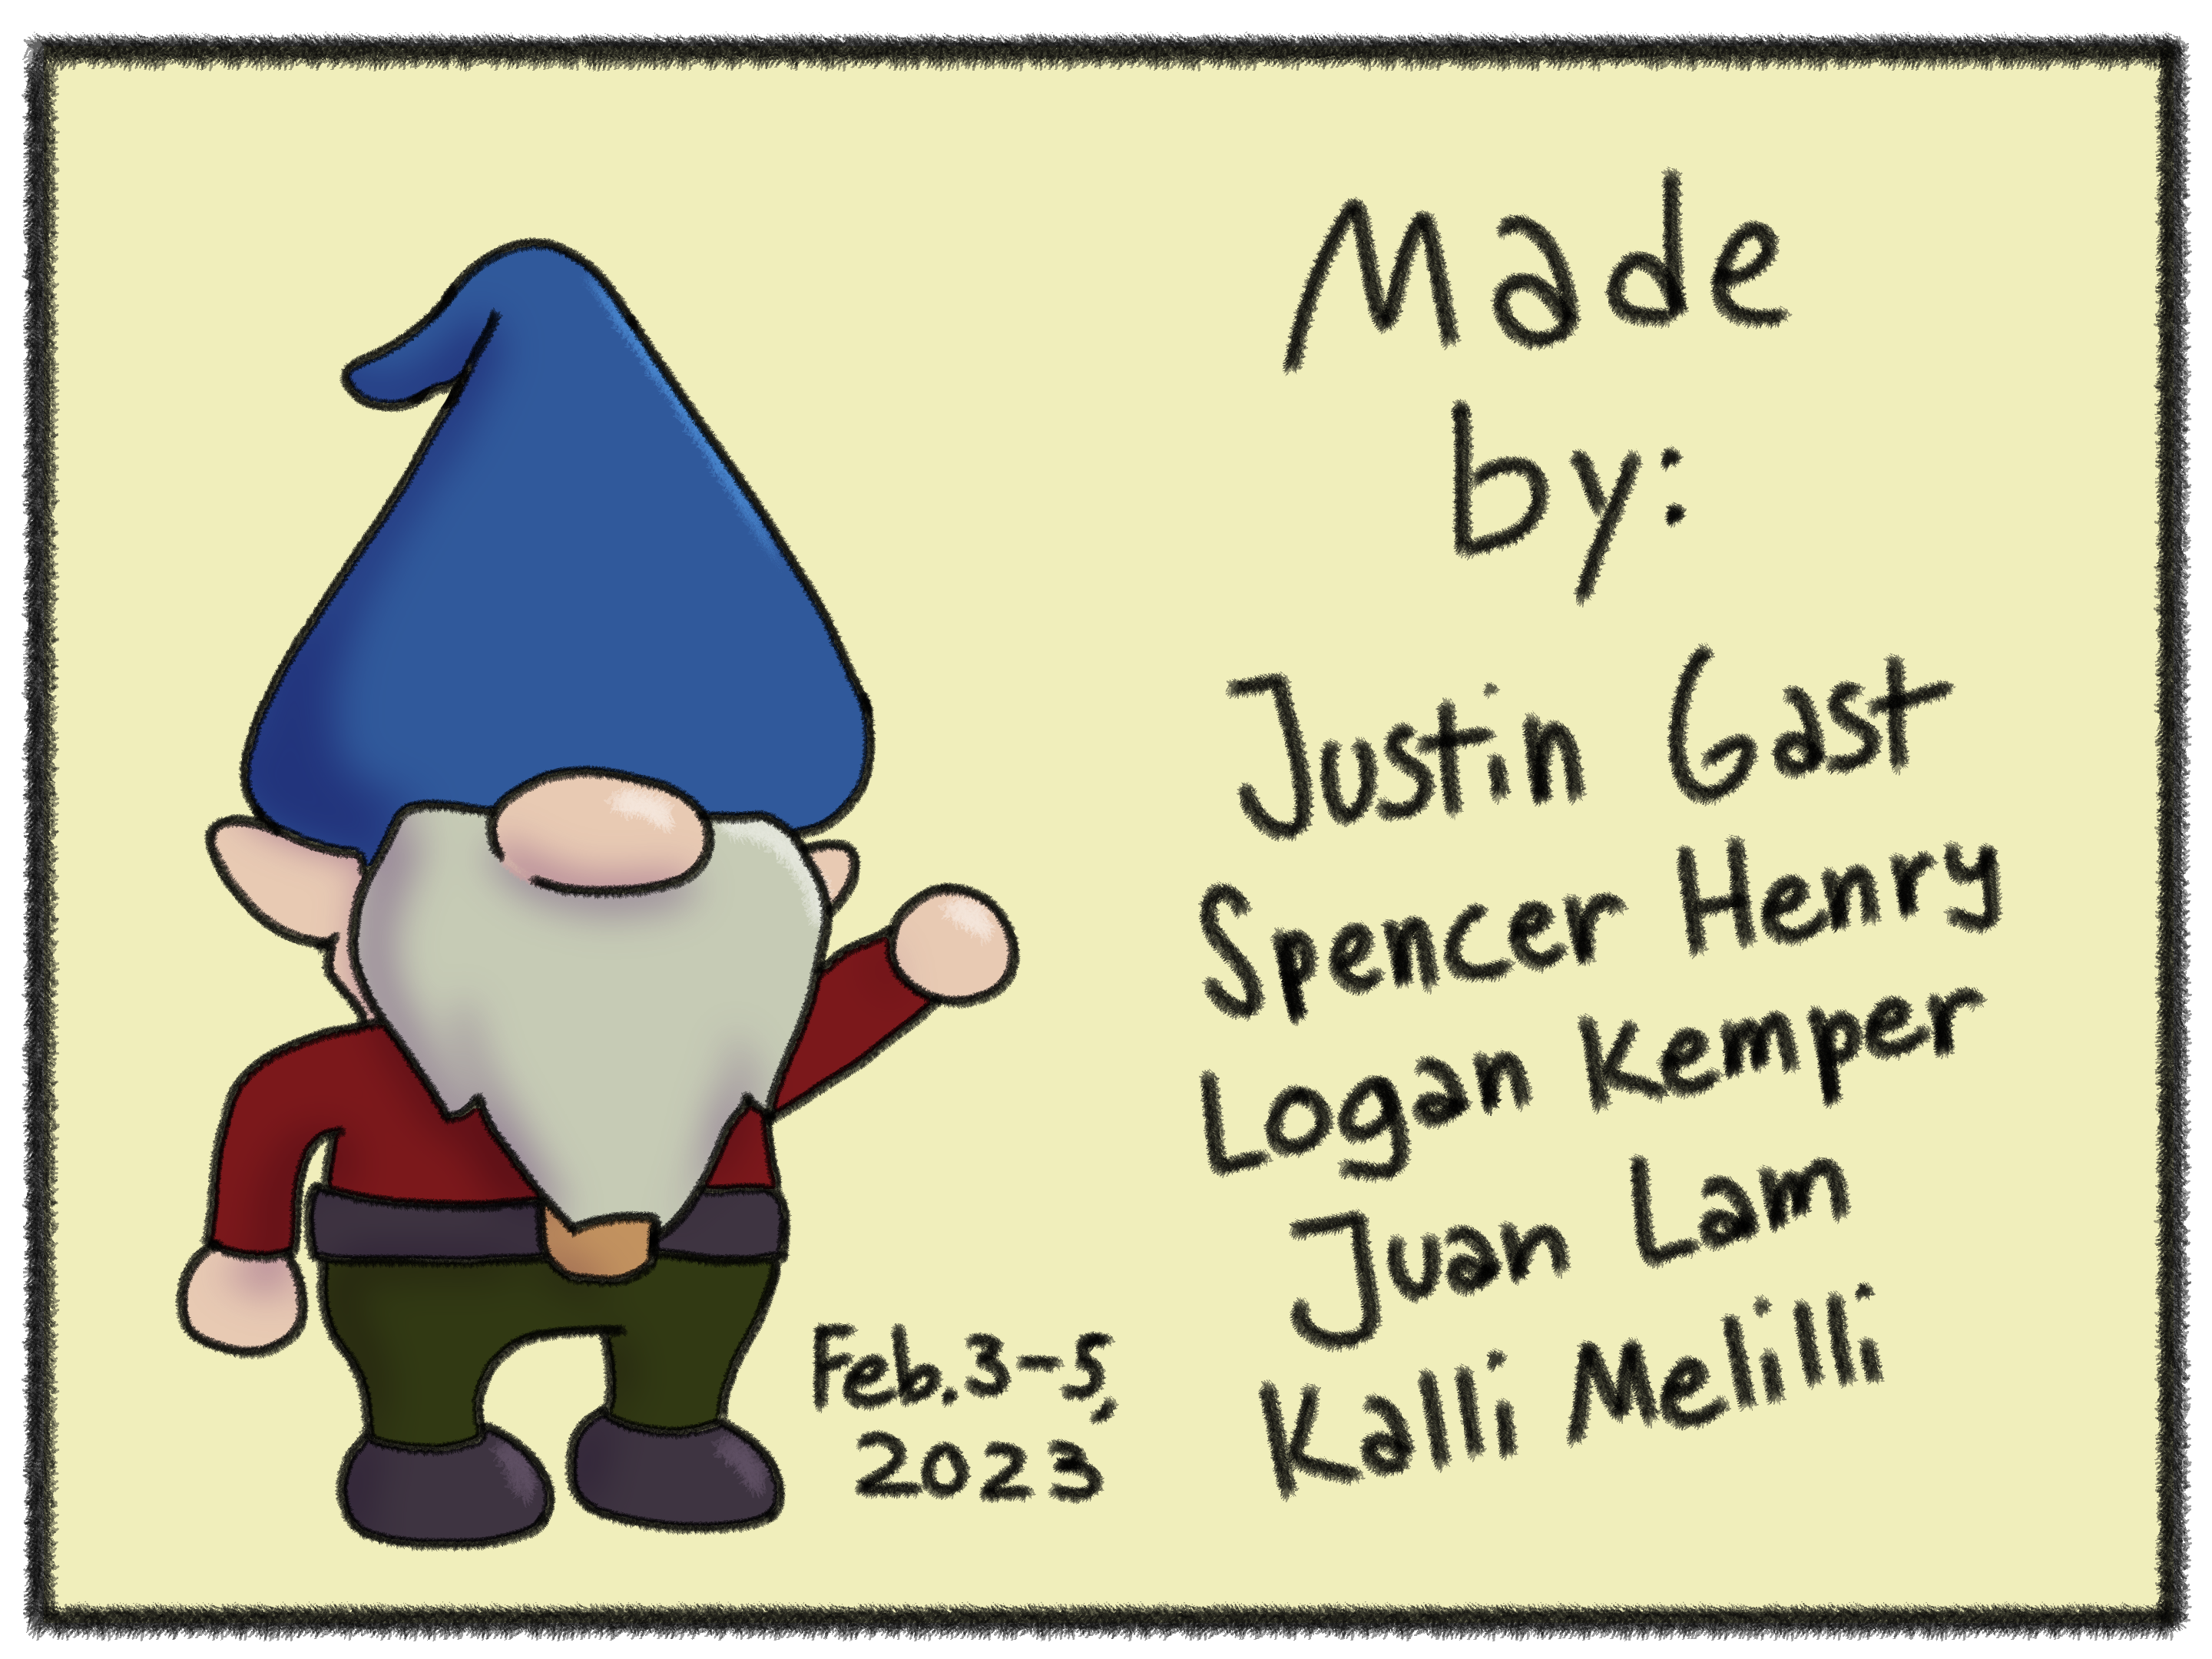 Made
by:
Justin Gast
Spencer Henry
Logan Kemper
Juan Lam
Kalli Melilli
Feb. 3-5,
2023